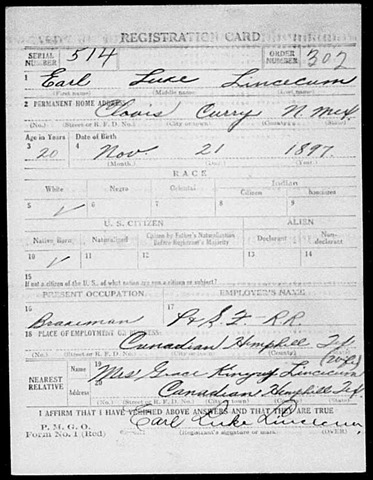 REGISTRATION CARD
SERIAL NUMBER 514 ORDER NUMBER 307
1 Earl Luke Lincecum
(First name) (Middle name) (Last name)
2 PERMANENT HOME ADDRESS
Clovis Curry N. Mex.
(No.) (Street or R. F. D. No.) (City or town) (County) (State)
Age in Years Date of Birth
3 20 4 Nov. 21 1897.
(Month.) (Day.) (Year.)
RACE
White Negro Oriental Indian
Citizen Noncitizen
5 ✓ 6 7 8 9
U. S. CITIZEN ALIEN
Native Born Naturalized Citizen by Father's Naturalization Before Registrant's Majority Declarant Non-declarant
10 ✓ 11 12 13 14
15
If not a citizen of the U. S., of what nation are you a citizen or subject?
PRESENT OCCUPATION EMPLOYER'S NAME
16 Brakeman 17 S. F. R.R.
18 PLACE OF EMPLOYMENT OR BUSINESS
Canadian Hemphill Tex
(No.) (Street or R. F. D. No.) (City or town) (County) (State)
NEAREST RELATIVE
Name 19 Mrs Grace Lincecum (wife)
Address 20 Canadian Hemphill Tex.
(No.) (Street or R. F. D. No.) (City or town) (County) (State)
I AFFIRM THAT I HAVE VERIFIED ABOVE ANSWERS AND THAT THEY ARE TRUE
P. M. G. O.
Form No. 1 (Red) Earl Luke Lincecum
(Registrant's signature or mark) (OVER)